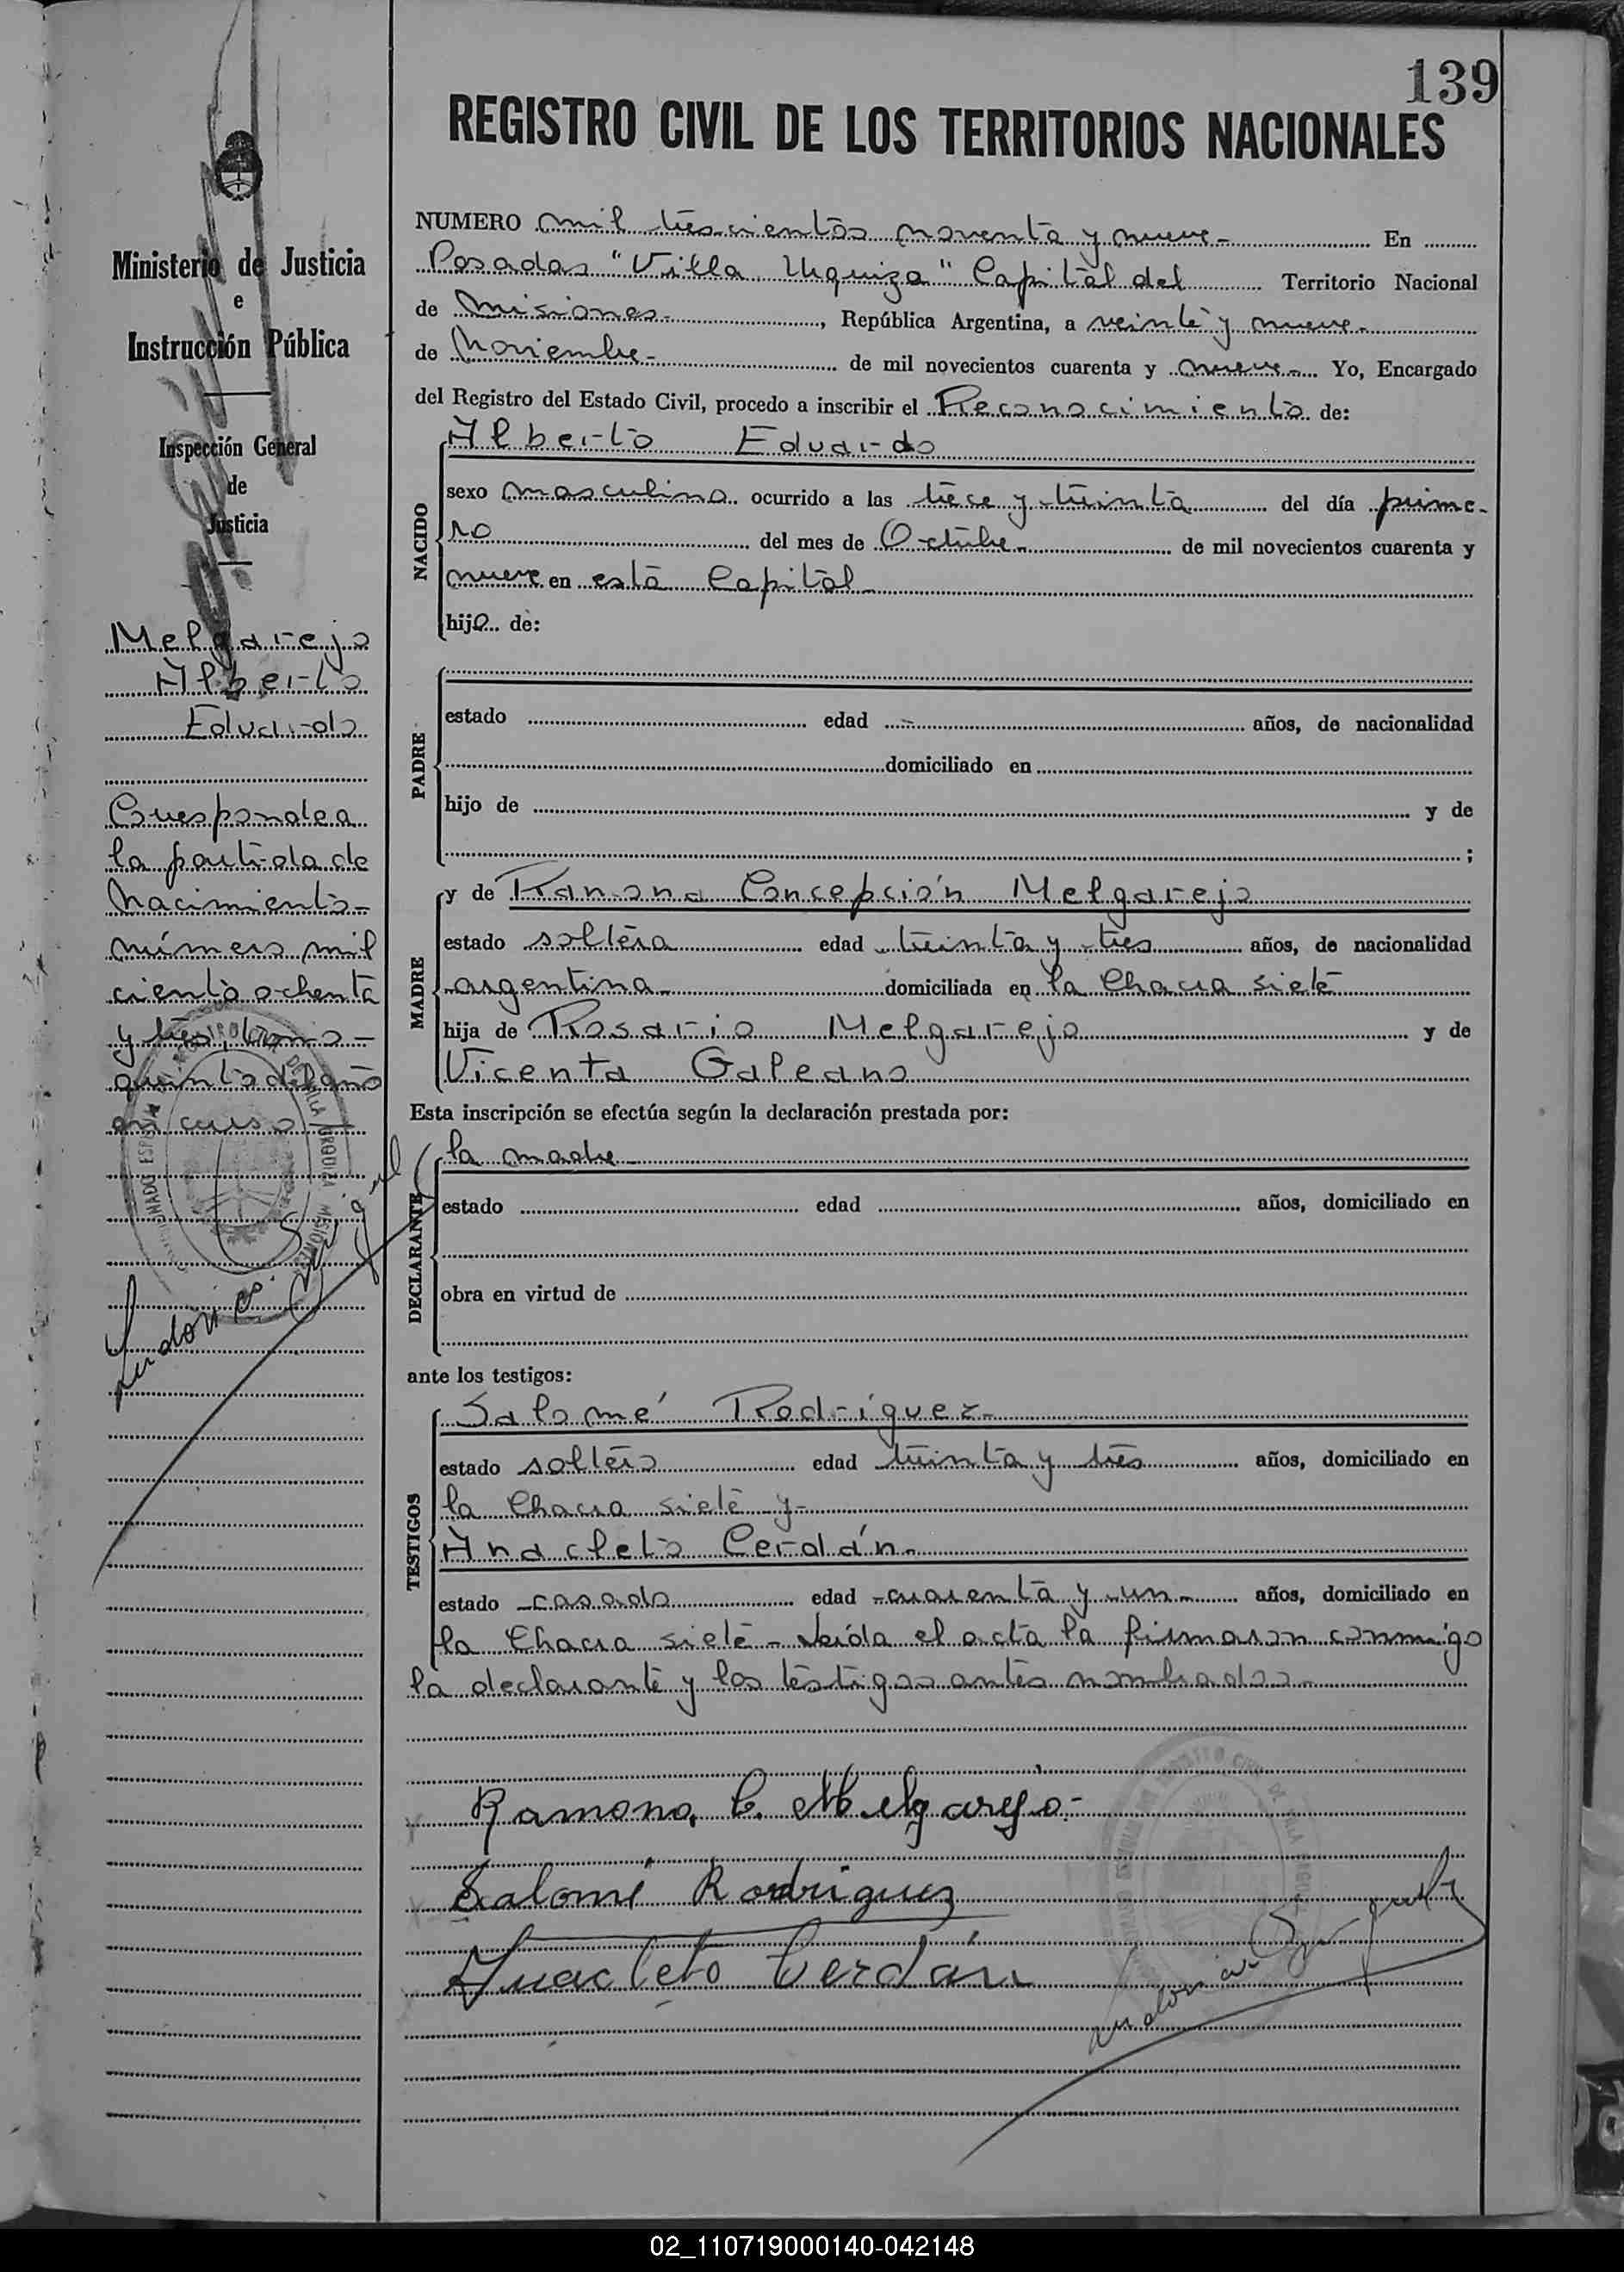 139
REGISTRO CIVIL DE LOS TERRITORIOS NACIONALES
Ministerio de Justicia
e
Instrucción Pública
Inspección General
de
Justicia
Melgarejo
Alberto
Eduardo
Corresponde a
la partida de
Nacimiento-
número mil
ciento ochenta
y tres, tomo-
quinto del año
en curso
NUMERO mil trescientos noventa y nueve- En
Posadas "Villa Urquiza" Capital del Territorio Nacional
de Misiones-, República Argentina, a veinte y nueve-
de Noviembre- de mil novecientos cuarenta y nueve- Yo, Encargado
del Registro del Estado Civil, procedo a inscribir el Reconocimiento de:
Alberto Eduardo
NACIDO
sexo masculino ocurrido a las trece y treinta del día prime-
ro del mes de Octubre- de mil novecientos cuarenta y
nueve en esta Capital-
hijo de:
PADRE
estado edad años, de nacionalidad
domiciliado en
hijo de y de
;
MADRE
y de Ramona Concepción Melgarejo
estado soltera edad treinta y tres años, de nacionalidad
argentina- domiciliada en la Chacra siete
hija de Rosario Melgarejo y de
Vicenta Galeano
Esta inscripción se efectúa según la declaración prestada por:
DECLARANTE
la madre-
estado edad años, domiciliado en
obra en virtud de
ante los testigos:
TESTIGOS
Salomé Rodríguez-
estado soltero edad treinta y tres años, domiciliado en
la Chacra siete y-
Anacleto Cerdán-
estado casado edad cuarenta y un- años, domiciliado en
la Chacra siete- Leída el acta la firmaron conmigo
la declarante y los testigos antes nombrados-
Ramona C. Melgarejo-
Salomé Rodriguez
Anacleto Cerdán
02_110719000140-042148